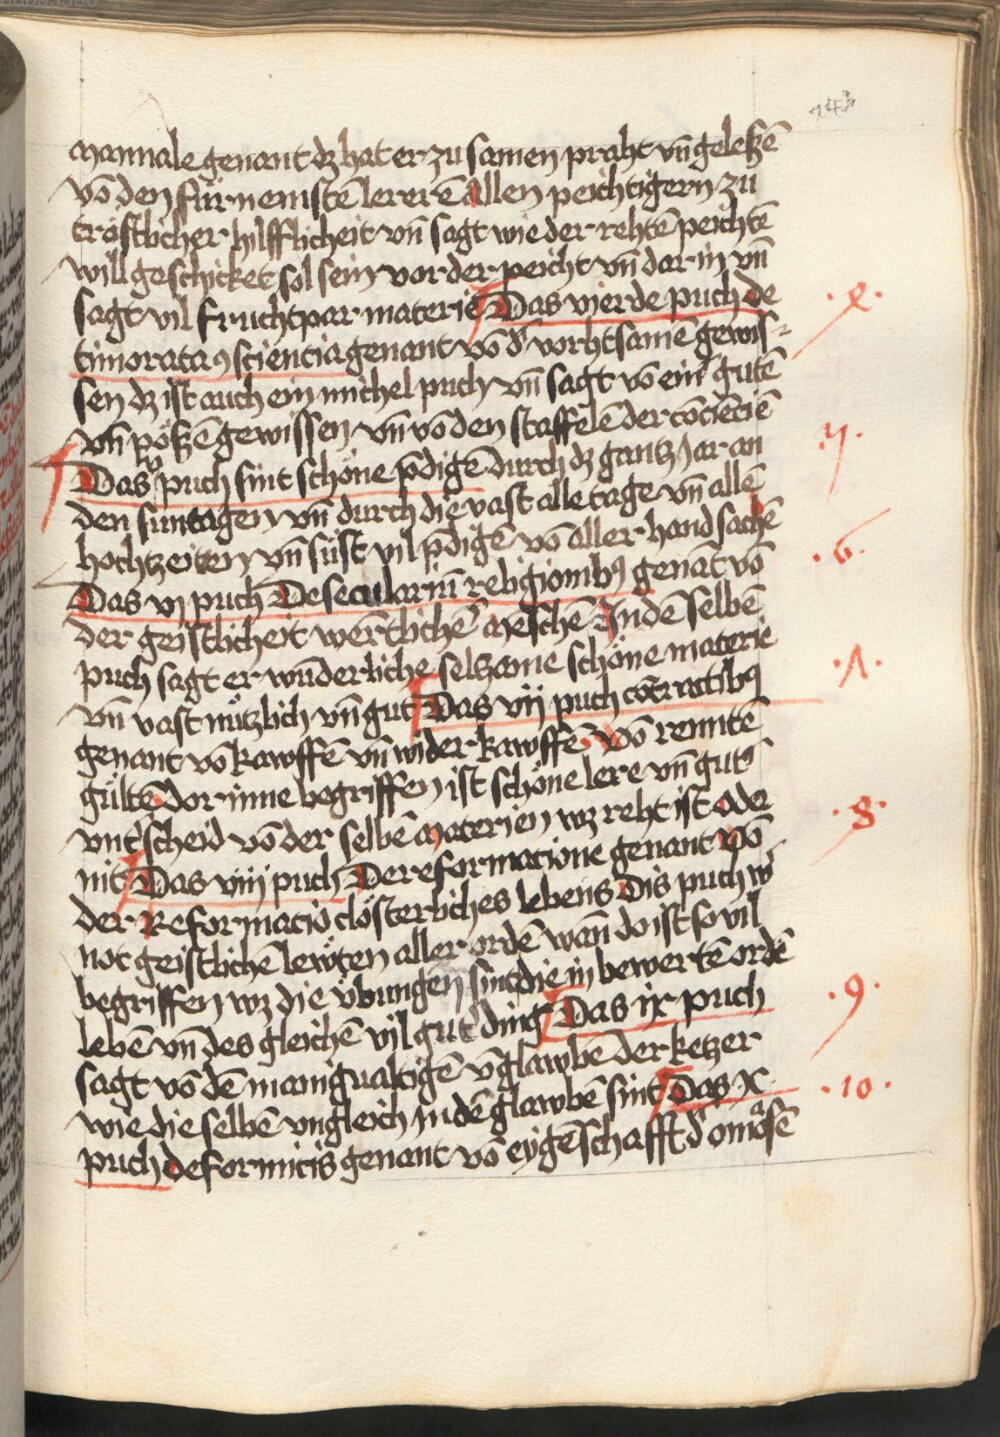 manuale genant dz hat er zu samen praht vn̄ geleßē
vō den fürnemistē lererē Allen peichtigern zu
tröstlicher hilfflicheit vn̄ sagt wie der rehtē peichtē
will geschicket sol sein vor der peicht vn̄ dar in vn̄
sagt vil fruchtpar materie Das vierde puch de
.4.
timorata ꝯsciencia genant vō d' vorhtsamē gewis-
sen dz ist auch ein michel puch vn̄ sagt vō ein' gutē
vn̄ pößē gewissen vn̄ vō den staffelē der cōciēciē
.5.
Das v puch sint schöne p̄digē durch dz gantz Jar an
den suntagen vn̄ durch die vast alle tage vn̄ allē
hochtzeiten vn̄ süst vil p̄digē vō aller hand sachē
.6.
Das vj puch De seculariū religionibꝯ genāt vō
der geistlicheit werltlichē mēschē In dē selbē
puch sagt er wūderliche selzame schöne materie
.7.
vn̄ vast nützlich vn̄ gut Das vij puch cōtractibꝯ
genant vō kawffē vn̄ wider kawffē vō renntē
gültē dor inne begriffen ist schöne lere vn̄ gut'
vnt'scheid vō der selbē materien wz reht ist oder
.8.
nit Das viij puch De reformacione genant vō
der Reformacio clösterliches lebens Dis puch w'
not geistlichē lewten aller ordē wān do ist so vil
begriffen wz die übungen sint die in bewertē ordē
lebē vn̄ des gleichē vil gut' ding Das ix puch
.9.
sagt vō dē manigualtigē vglawbē der ketzer
wie die selbē vngleich in dē glawbē sint Das X
.10.
puch de formicis genant vō eygēschafft d' omasē